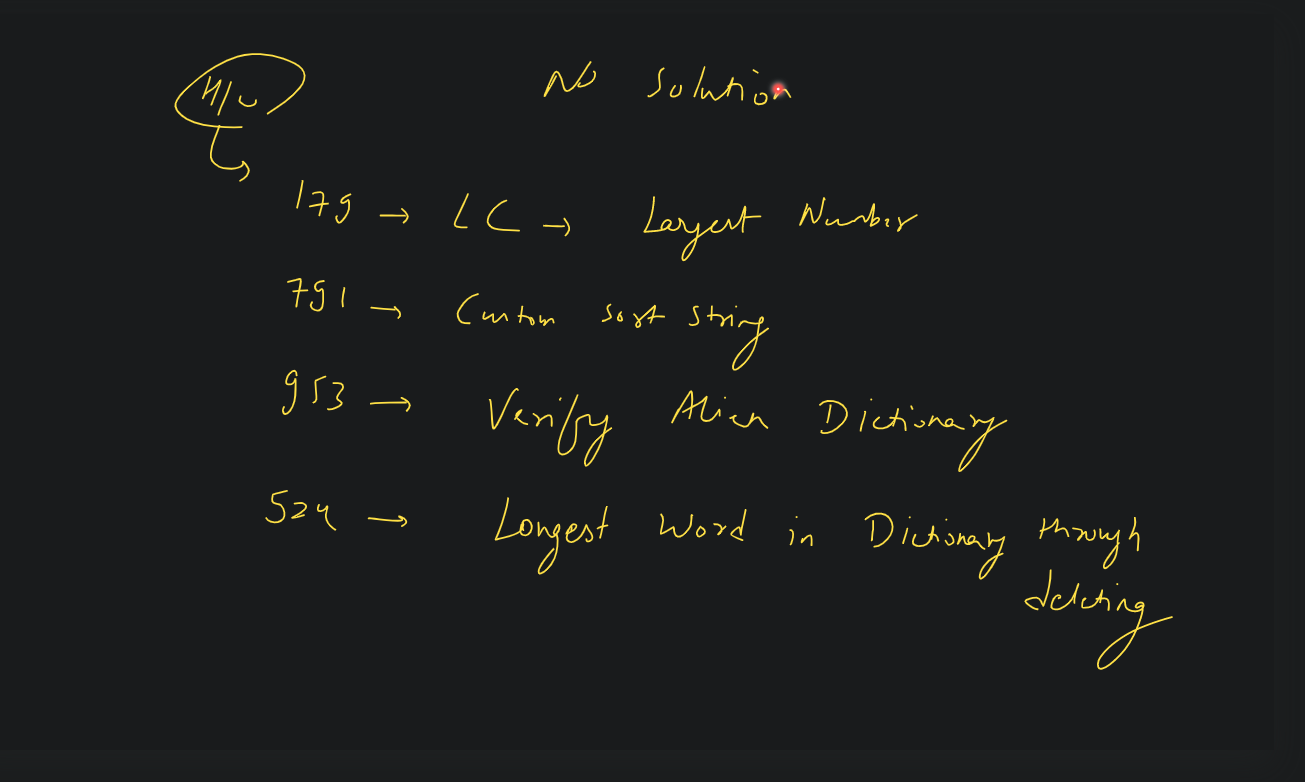 H/w
No Solution
179 → LC → Largest Number
791 → Custom sort string
953 → Verify Alien Dictionary
524 → Longest Word in Dictionary through
deleting